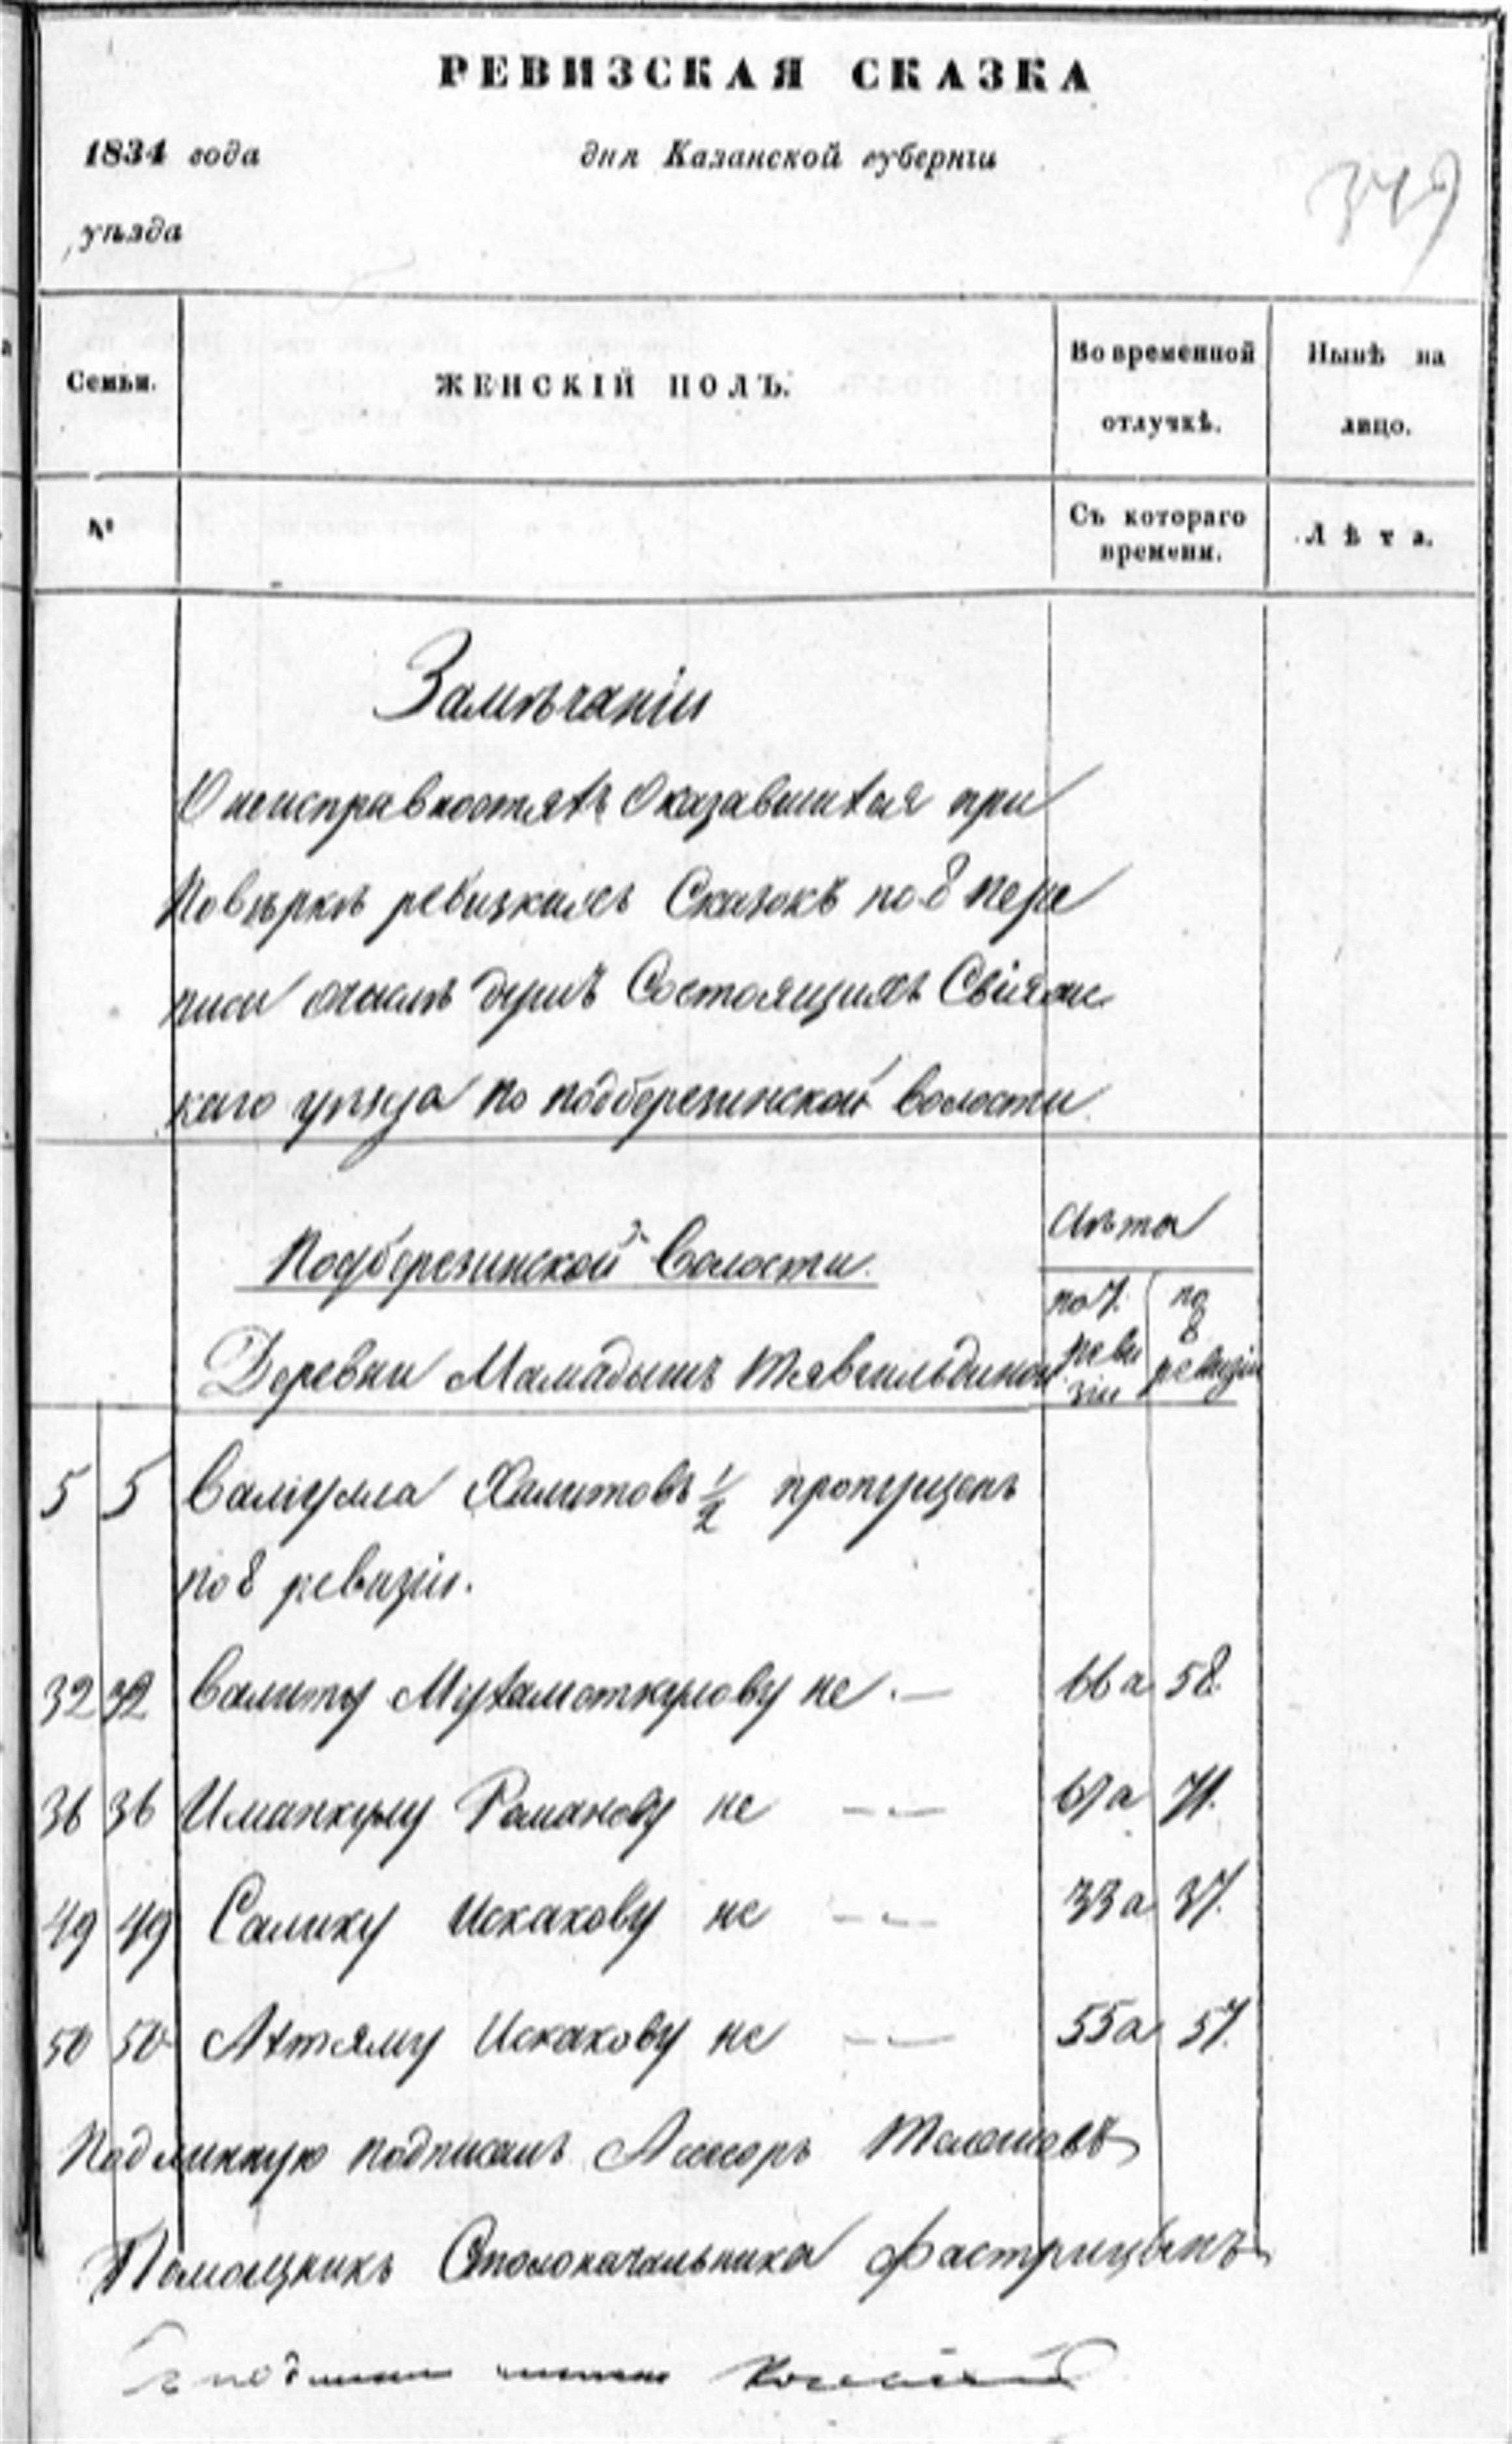 РЕВИЗСКАЯ СКАЗКА
1834 года дня Казанской губерніи
349
уѣзда
Семьи. ЖЕНСКІЙ ПОЛЪ. Во временной отлучкѣ. Нынѣ на лицо.
№ Съ котораго времени. Лѣта.
Замѣчаніи
О неисправностяхъ Оказавшихся при
Повѣркѣ ревизкихъ Сказокъ по 8 пере
писи очислѣ душъ Состоящихъ Свіяжс
каго уѣзда по подберезинской волости
Лѣта
Подберезинской Волости.
по 7. реви зіи по 8 ревизіи
Деревни Мамадышъ Тявгильдиной
5 5 Валіулла Халитовъ 1/2 пропущенъ
по 8 ревизіи.
32 32 Валиту Мухаметкулову не — 66 а 58.
36 36 Иманкулу Романову не — 67 а 71.
49 49 Салику Искакову не — 33 а 37.
50 50 Ахтяму Искакову не — 55 а 57.
Подлинную подписалъ Асесоръ
Помощникъ Столоначальника Фастрицынъ